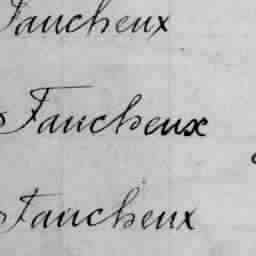 Faucheux
Faucheux
Faucheux